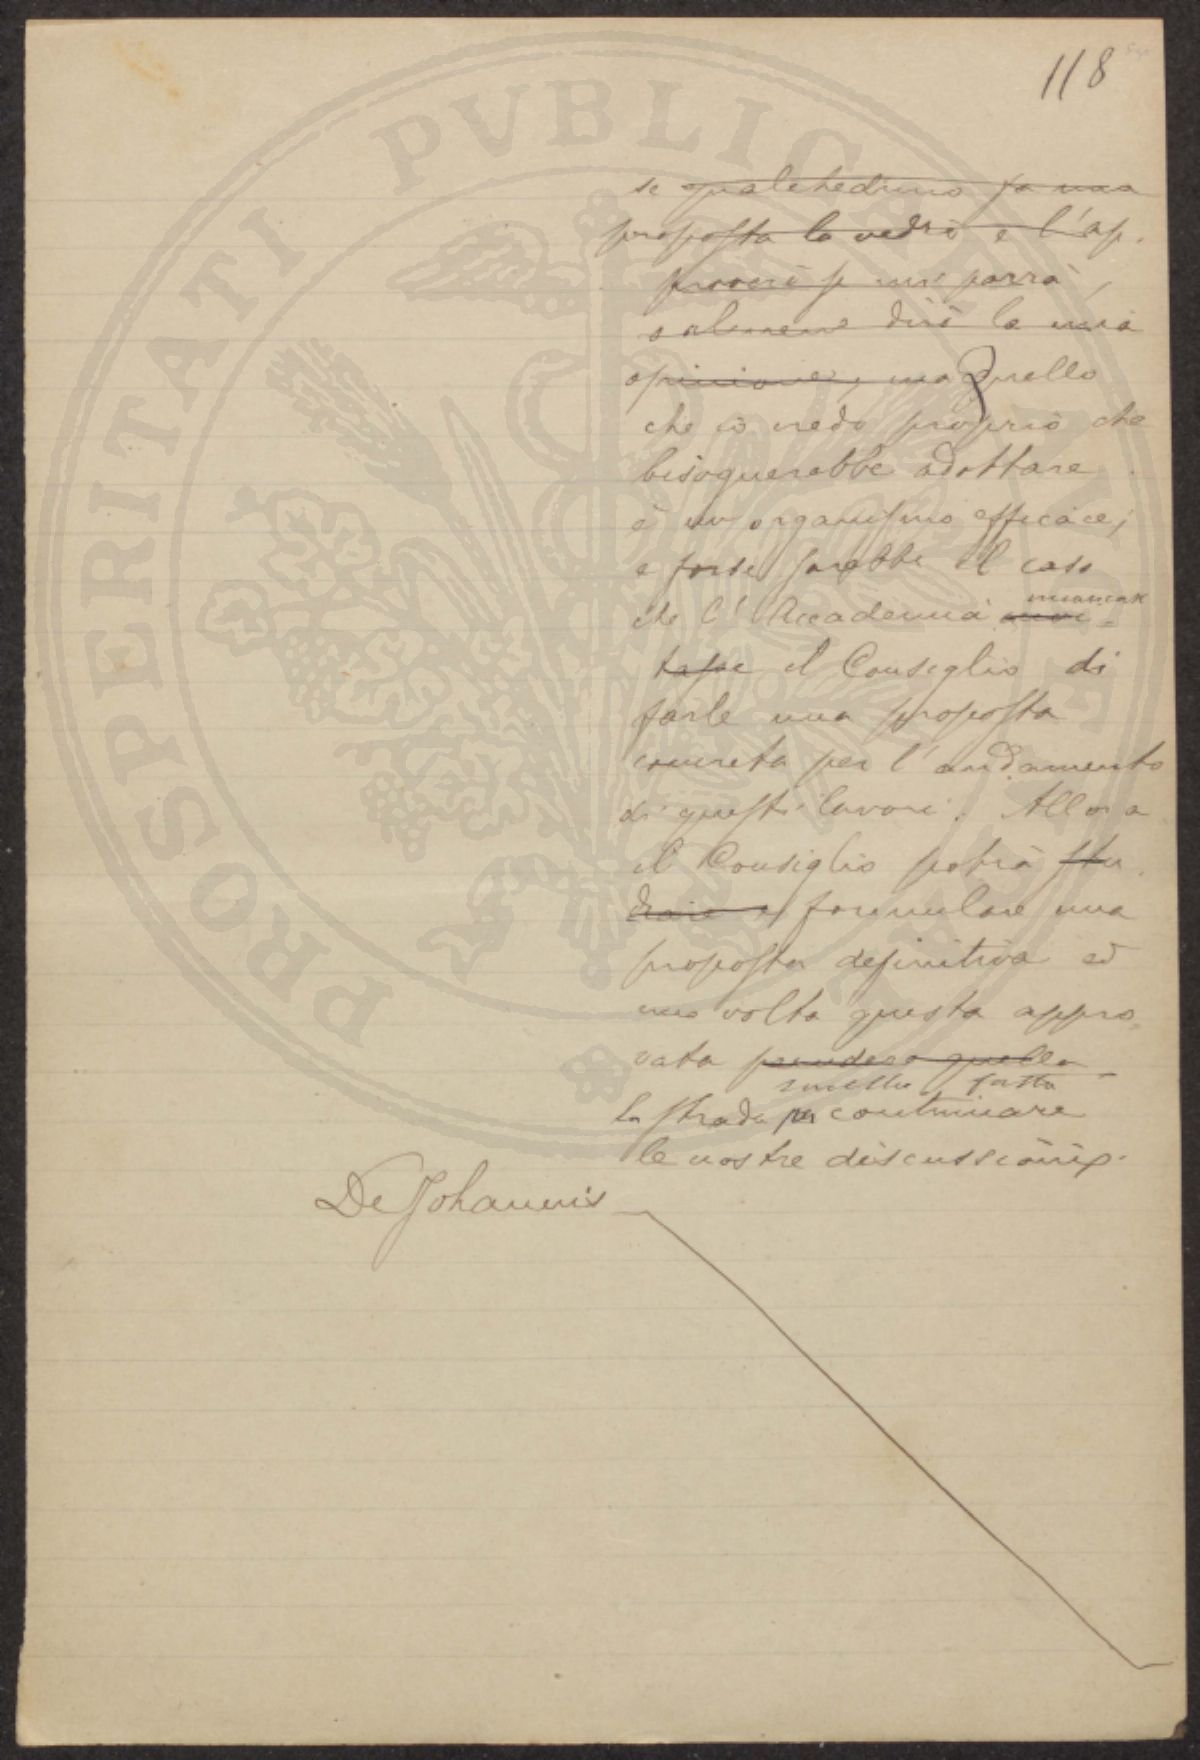 118
se qualcheduno fa una
proposta la vedrò e l'ap-
proverò se mi parrà,
solamente dirò la mia
opinione, ma Quello
che io credo proprio che
bisognerebbe adottare
è un organismo efficace;
e forse sarebbe il caso
che l'Accademia invi-
tasse il Consiglio di
farle una proposta
concreta per l'andamento
di questi lavori. Allora
il Consiglio potrà stu-
diare e formulare una
proposta definitiva ed
una volta questa appro-
vata prendere quella
la strada per continuare
le nostre discussioni.
De Johannis
PROSPERITATI PVBLICAE